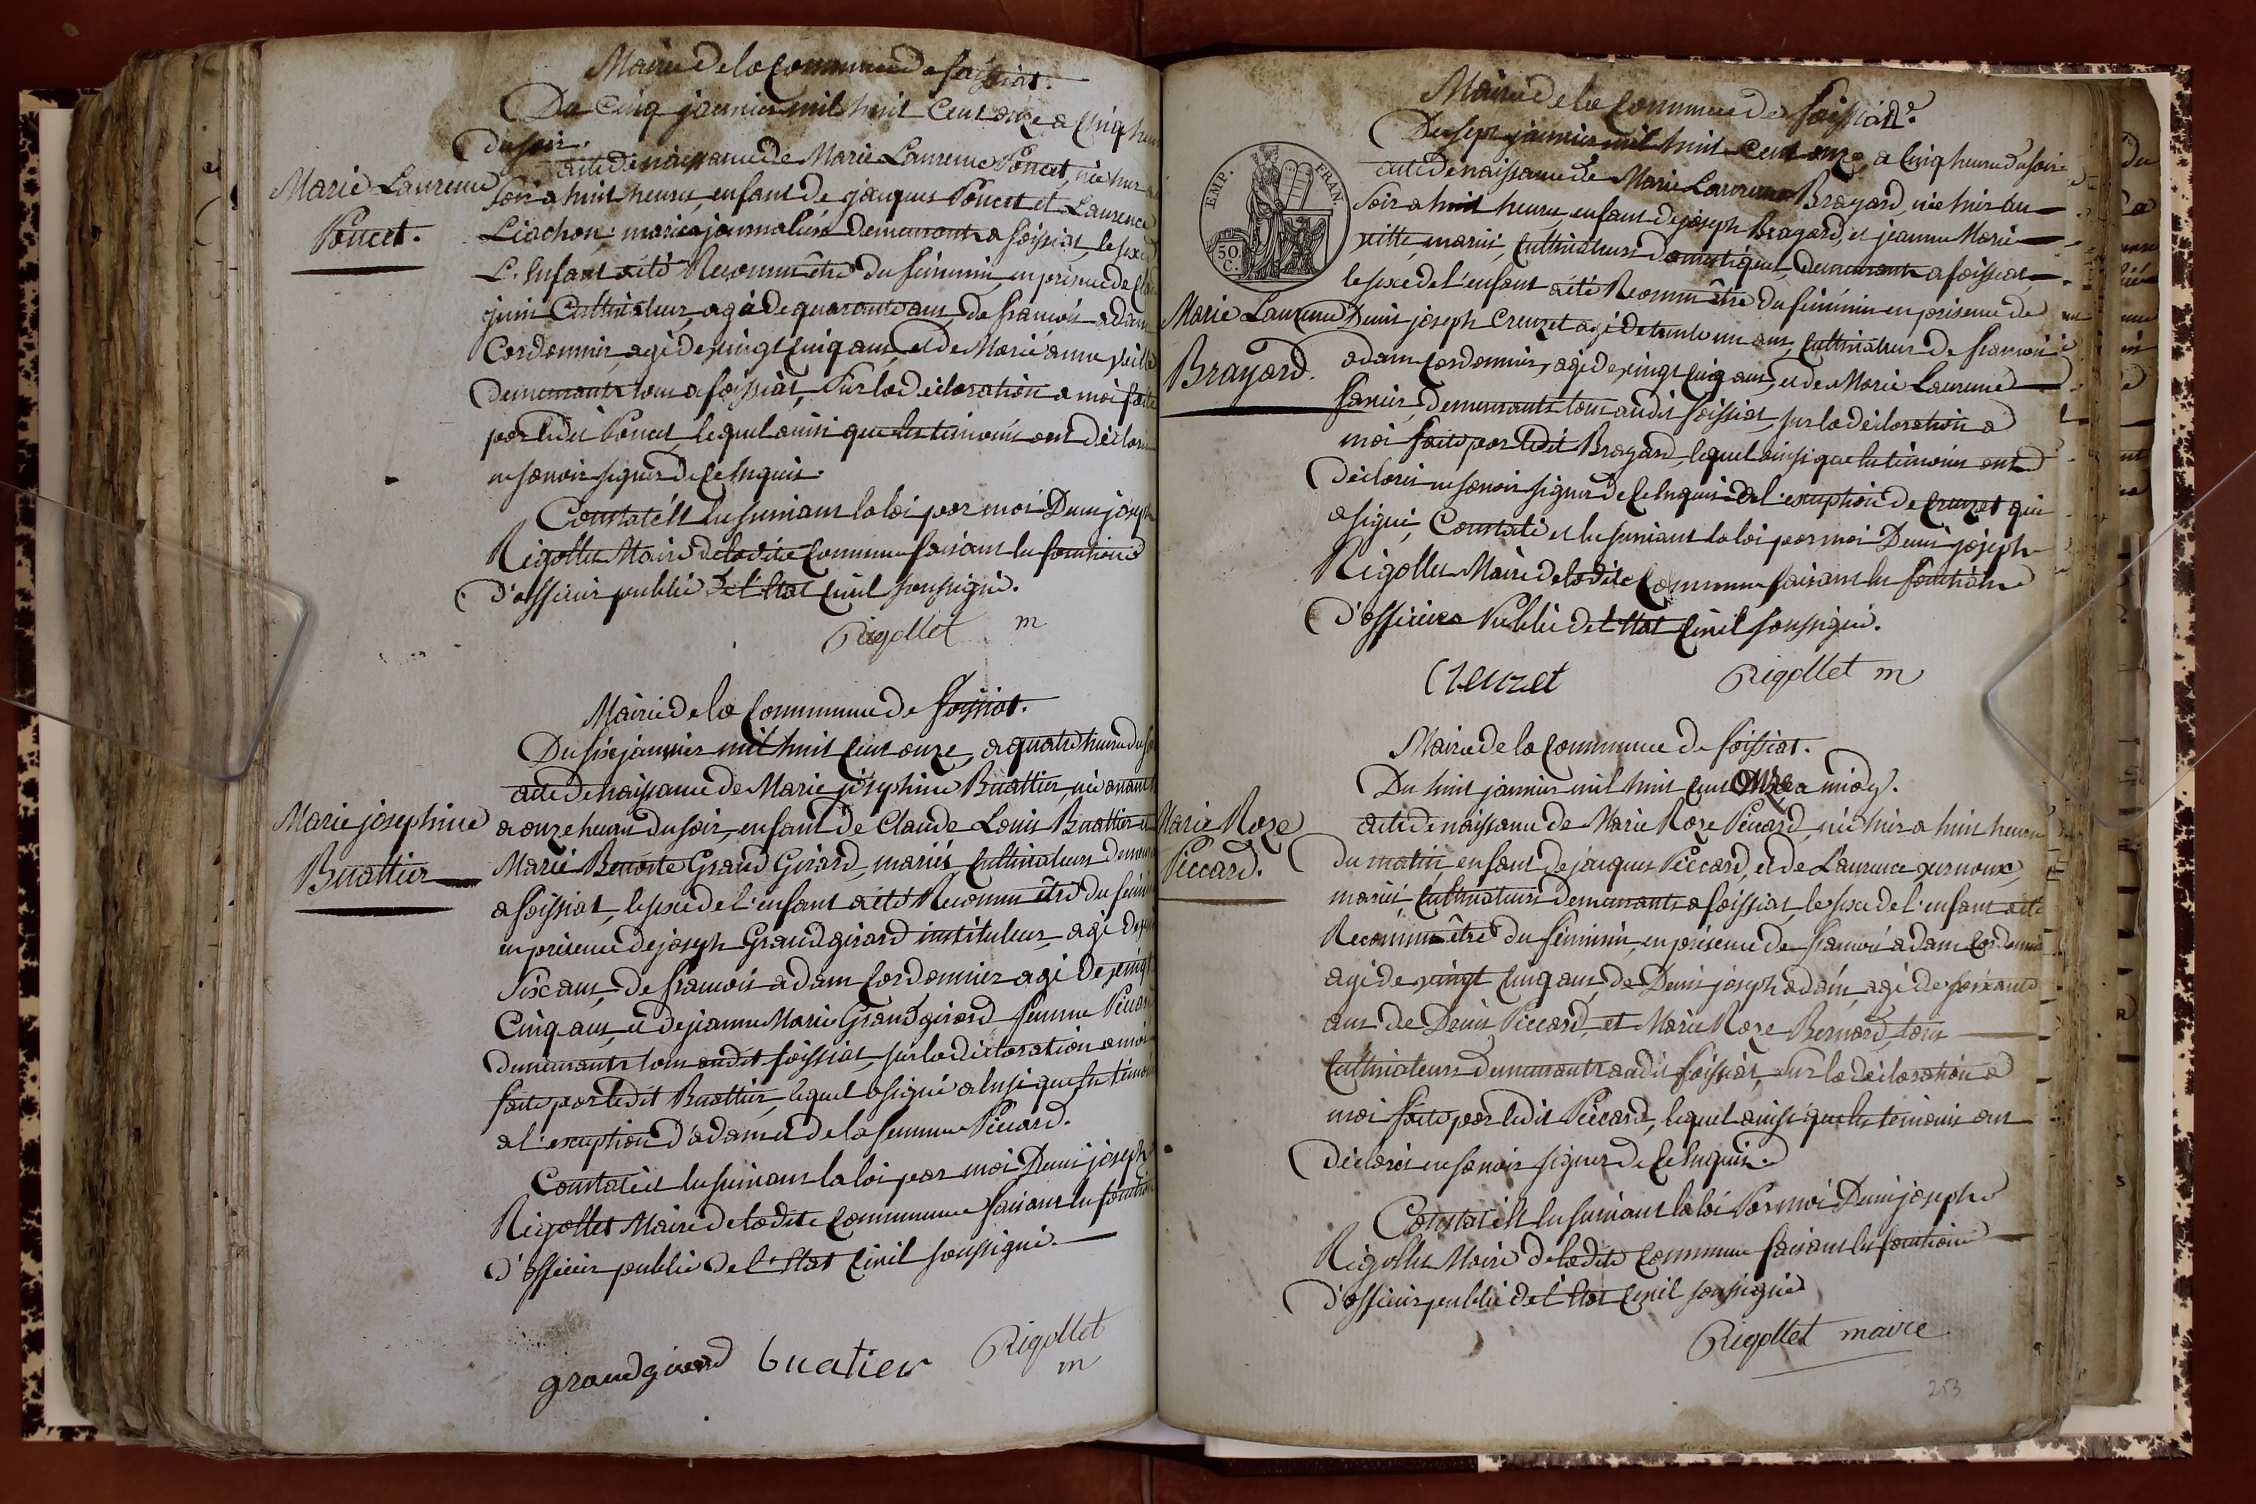 Mairie de la Commune de foissiat.
Du Cinq janvier mil huit Cent onze a Cinq heure
du soir.
acte de naissance de Marie Laurence Poncet, née hier au
Marie Laurence
Poncet.
soir a huit heures, enfant de jacques Poncet et Laurence
Liachon, mariés journaliers demeurants a foissiat, le sexe de
L'enfant a été Reconnu être du féminin, en présence de
juin Cultivateur, agé de quarante ans, de francois adam
Cordonnier, agé de vingt Cinq ans, et de Marie anne
demeurants tous a foissiat, sur la déclaration a moi faite
par ledit Poncet, lequel ainsi que les témoins ont déclaré
ne savoir signer de Ce Enquis.
Constaté et lu suivant la loi par moi Denis joseph
Rigollet Maire de ladite Commune faisant les fonctions
d'officier public de l'Etat Civil soussigné.
Rigollet m
Mairie de la Commune de foissiat.
Du six janvier mil huit Cent onze, a quatre heure du soir
acte de naissance de Marie joséphine Buattier, née avant hier
Marie josephine
Buattier
a onze heures du soir, enfant de Claude Louis Buattier et
Marie Benoite Grand Girard, mariés, Cultivateurs demeurants
a foissiat, le sexe de l'enfant a été Reconnu être du féminin
en présence de joseph Grandgirard instituteur, agé de
six ans, de francois adam Cordonnier agé de vingt
Cinq ans, et de jeanne Marie Grandgirard femme Piccard
demeurants tous audit foissiat, sur la déclaration a moi
faite par ledit Buattier, lequel a signé ainsi que les témoins
a l'exception d'adam et de la femme Piccard.
Constaté et lu suivant la loi par moi Denis joseph
Rigollet Maire de ladite Commune faisant les fonctions
d'officier public de l'Etat Civil soussigné.
grandgirard buatier Rigollet
m
Mairie de la Commune de foissiat.
Du sept janvier mil huit Cent onze, a Cinq heure du soir
EMP. FRAN.
50
C.
acte de naissance de Marie Laurence Brayard, née hier au
soir a huit heures, enfant de joseph Brayard, et jeanne Marie
vitte, mariés, Cultivateurs domestiques, demeurants a foissiat
le sexe de l'enfant a été Reconnu être du féminin en présence de
Marie Laurence
Brayard.
Denis joseph Creuzet agé de trente un ans, Cultivateur de francois
adam Cordonnier, agé de vingt Cinq ans, et de Marie Laurence
demeurants tous audit foissiat, sur la déclaration a
moi faite par ledit Brayard, lequel ainsi que les témoins ont
déclaré ne savoir signer de Ce Enquis a l'exception de Creuzet qui
a signé, Constaté et lu suivant la loi par moi Denis joseph
Rigollet Maire de ladite Commune faisant les fonctions
d'officier Public de l'Etat Civil soussigné.
Creuzet Rigollet m
Mairie de la Commune de foissiat.
Du huit janvier mil huit Cent onze a midy.
acte de naissance de Marie Roze Piccard, née hier a huit heures
Marie Roze
Piccard.
du matin, enfant de jacques Piccard, et de Laurence vernoux,
mariés, Cultivateurs demeurants a foissiat, le sexe de l'enfant a été
Reconnu être du féminin, en présence de francois adam Cordonnier
agé de vingt Cinq ans, de Denis joseph adam, agé de soixante
ans de Denis Piccard, et Marie Roze Bernard, tous
Cultivateurs demeurants audit foissiat, sur la déclaration a
moi faite par ledit Piccard, lequel ainsi que les témoins ont
déclaré ne savoir signer de Ce Enquis.
Constaté et lu suivant la loi Par moi Denis joseph
Rigollet Maire de ladite Commune faisant les fonctions
d'officier public de l'Etat Civil soussigné
Rigollet maire
253